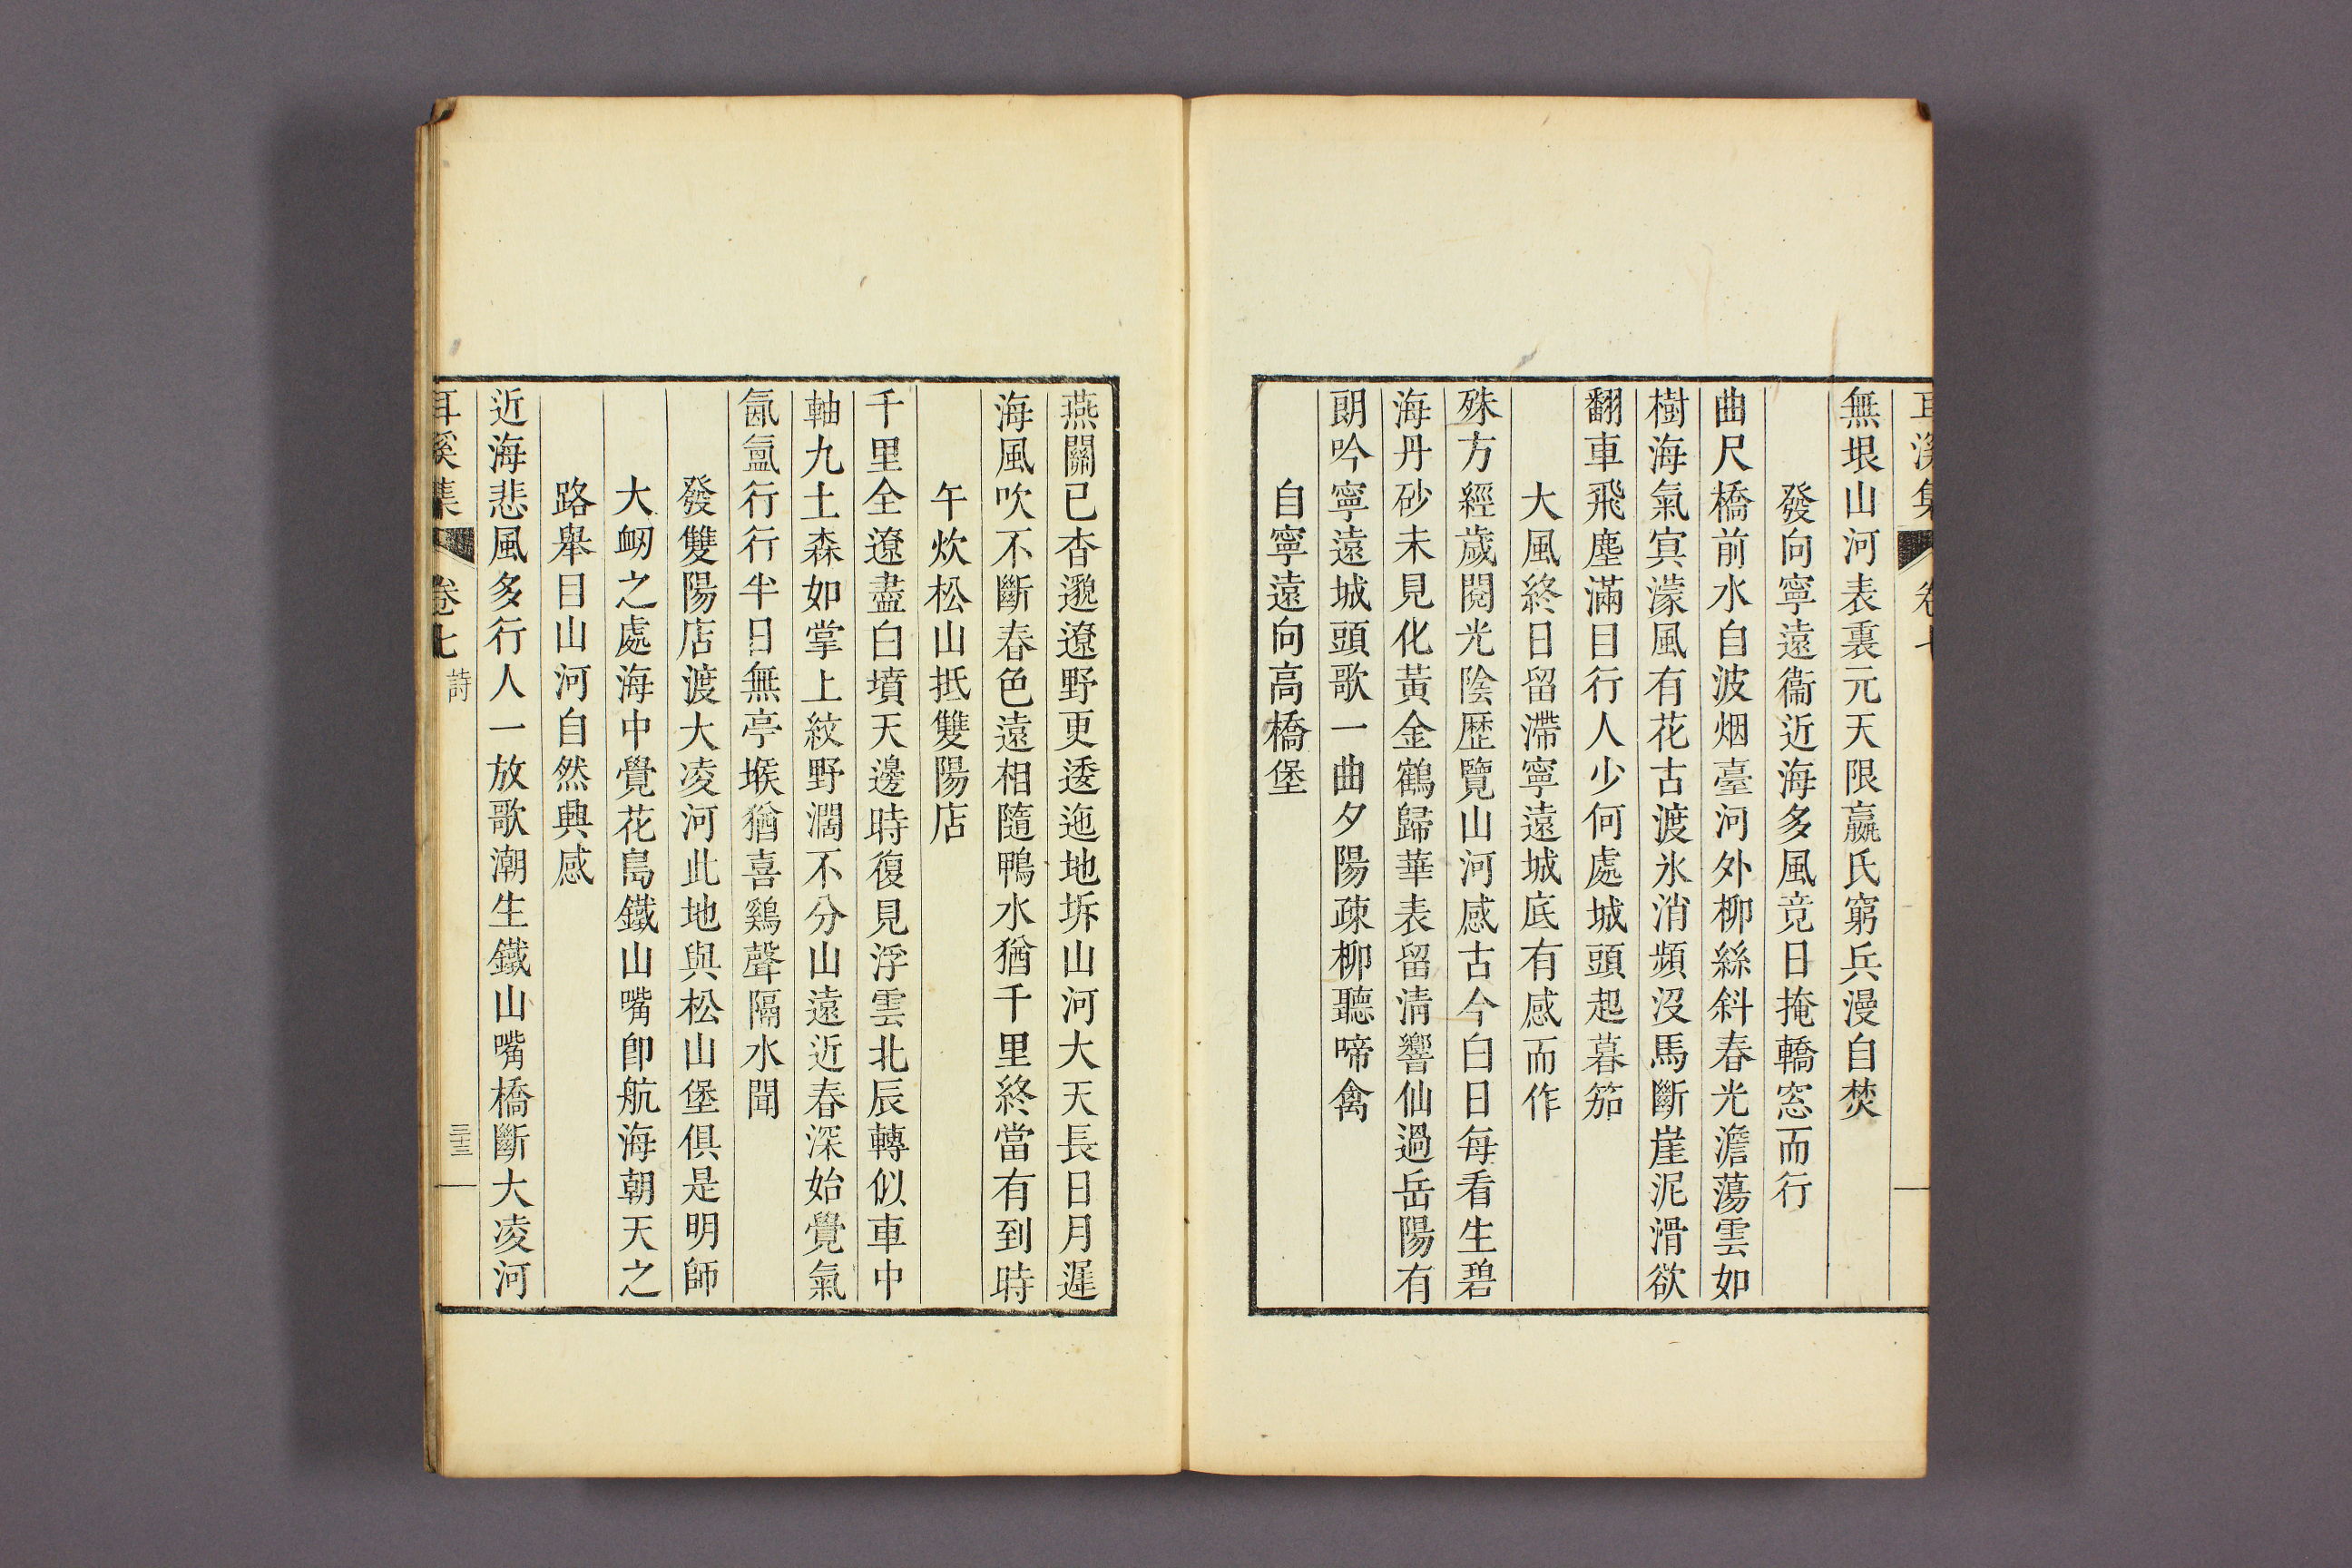 耳溪集 卷七
無垠山河表裏元天限嬴氏窮兵漫自焚
發向寧遠衞近海多風竟日掩轎窓而行
曲尺橋前水自波烟臺河外柳絲斜春光澹蕩雲如
樹海氣寘濛風有花古渡氷消頻沒馬斷崖泥滑欲
翻車飛塵滿目行人少何處城頭起暮笳
大風終日留滯寧遠城底有感而作
殊方經歲閱光陰歷覽山河感古今白日每看生碧
海丹砂未見化黃金鶴歸華表留淸響仙過岳陽有
朗吟寧遠城頭歌一曲夕陽疎柳聽啼禽
自寧遠向高橋堡
燕關已杳邈遼野更逶迤地坼山河大天長日月遲
海風吹不斷春色遠相隨鴨水猶千里終當有到時
午炊松山抵雙陽店
千里全遼盡白墳天邊時復見浮雲北辰轉似車中
軸九土森如掌上紋野濶不分山遠近春深始覺氣
氤氳行行半日無亭堠猶喜鷄聲隔水聞
發雙陽店渡大凌河此地與松山堡俱是明師
大衂之處海中覺花島鐵山嘴卽航海朝天之
路舉目山河自然興感
近海悲風多行人一放歌潮生鐵山嘴橋斷大凌河
耳溪集 卷七 詩 三十三